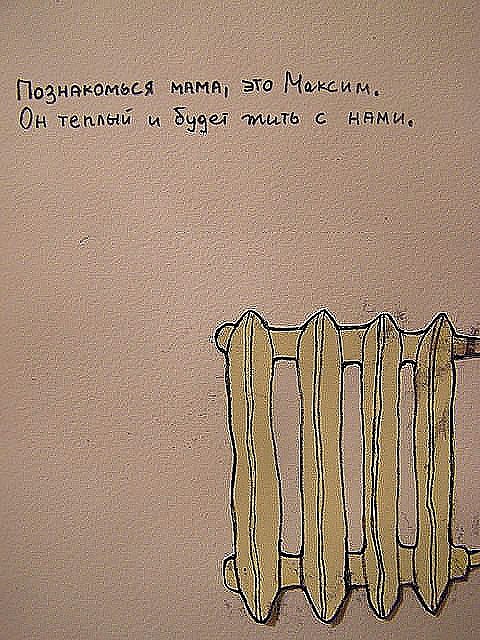 Познакомься мама, это Максим.
Он теплый и будет жить с нами.